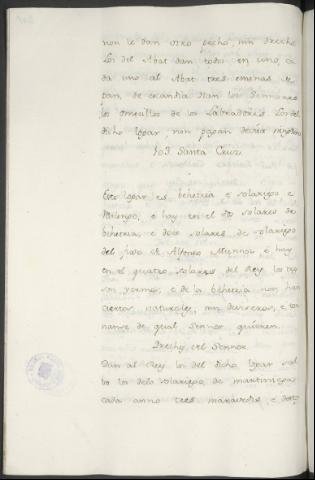 non le dan otro pecho, nin drecho
Los del Abat dan todos en uno, ca
da uno al Abat tres eminas de
pan, de exantia dan los
los omecillos de los Labradores Los del
dicho logar, non pagan
Santa Cruz
Este logar es behetria e solariego e
e hay en el solares de
behetria, e dos solares de solariego
del fijo de Alfonso Munnoz e hay
en el quatro solares del Rey, los tres
son yermos; e de la behetria non han
ciertos naturales, nin deviseros, e tor
nanse de qual Sennor quieren.
Drechos del Sennor
Dan al Rey los del dicho logar sal
bo los del solariego, de martiniega
cada anno tres maravedis, e